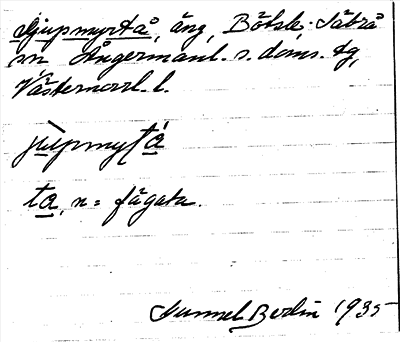 Djupmyrtå, äng, Bölsle. Säbrå
sn Ångermanl. s. doms. tg,
Västernorrl. l.
jùpmyṭa
ta, n = fägata.
Gunnel Berlin 1935